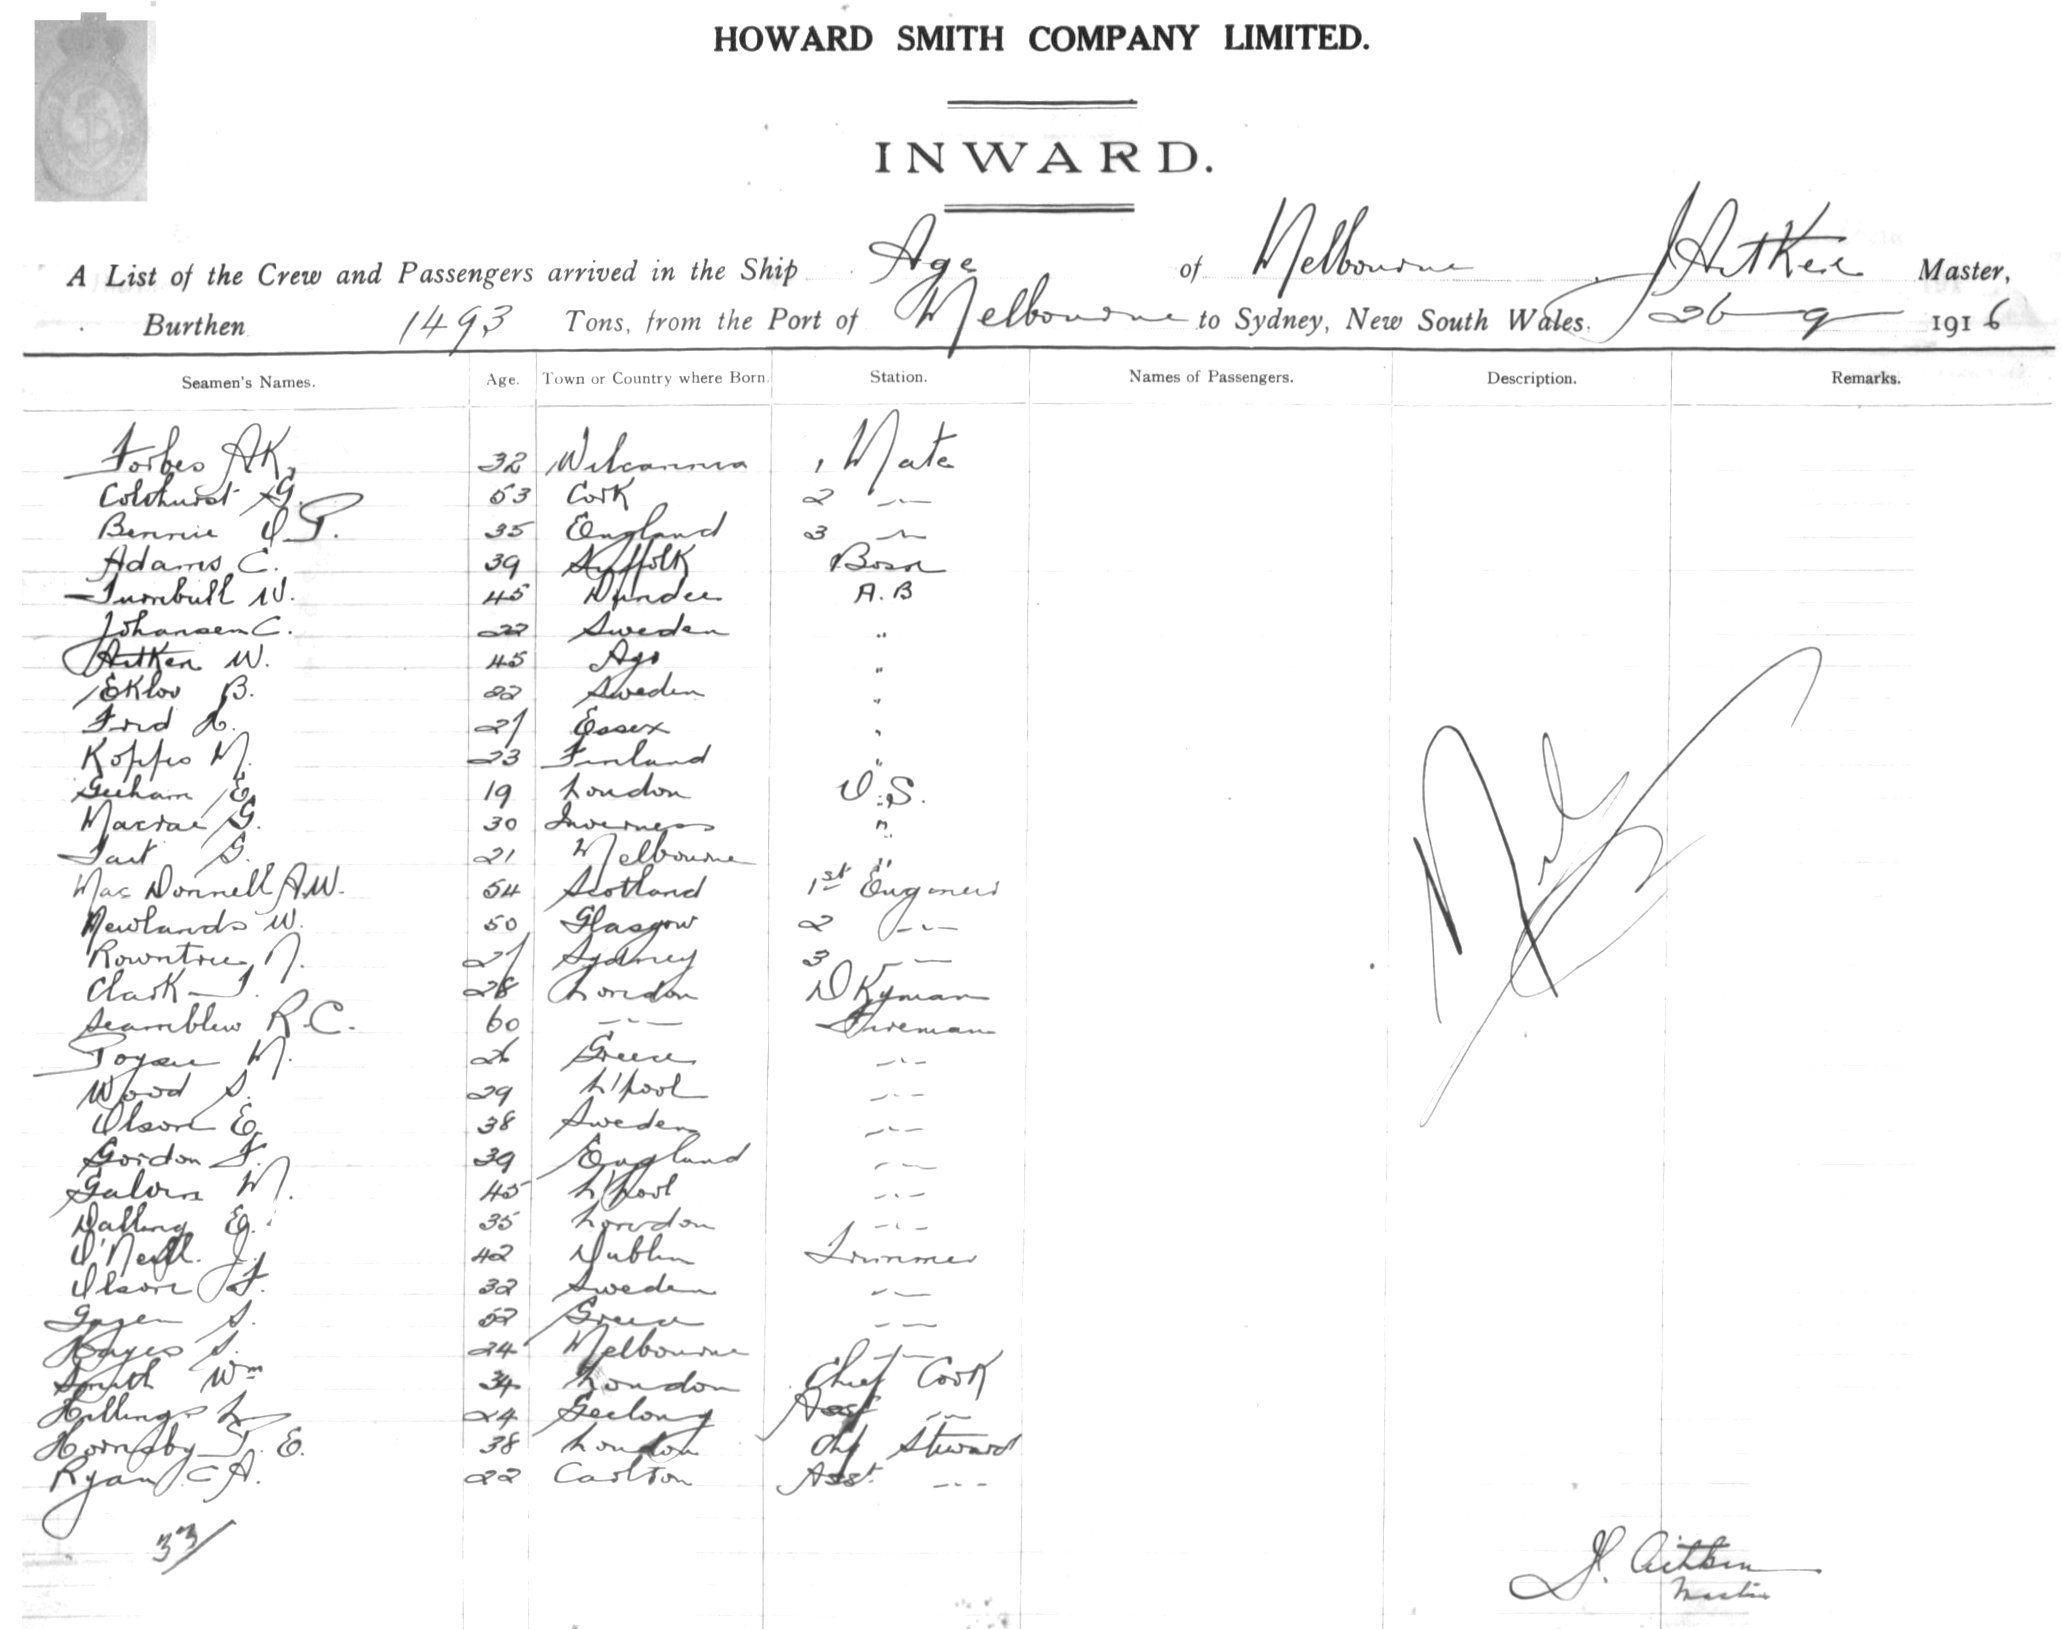 HOWARD SMITH COMPANY LIMITED.
INWARD.
A List of the Crew and Passengers arrived in the Ship Age of Melbourne J Aitken Master,
Burthen 1493 Tons, from the Port of Melbourne to Sydney, New South Wales. 26 9 1916
Seamen's Names. Age. Town or Country where Born. Station. Names of Passengers. Description. Remarks.
Forbes A K. 32 Wilcannia 1 Mate
Colthurst G. 53 Cork 2 -~-
Bennie O. P. 35 England 3 -~-
Adams C. 39 Suffolk Bosn
Turnbull W. 45 Dundee A.B
Johansen C. 22 Sweden "
Aitken W. 45 "
Eklov B. 22 Sweden "
Ford 21 Essex "
Koppo M. 23 Finland "
E. 19 London O.S.
Macrae G. 30 Inverness "
Tait G. 21 Melbourne "
Mac Donnell A.W. 54 Scotland 1st Engineer
Newlands W. 50 Glasgow 2 - - -
Rowntree N. 21 Sydney 3 - -
Clark J. 28 London Dkyman
R.C. 60 - - - Fireman
M. 26 Greece - - -
Wood S. 29 L'pool - - -
Olson E. 38 Sweden - - -
Gordon F. 39 England - - -
Galvin M. 45 L'pool - - -
Dalling E. 35 London - - -
O'Neill. J. 42 Dublin Trimmer
Olson F. 32 Sweden - - -
S. 52 Greece - - -
Hayes S. 24 Melbourne - - -
Smith Wm 34 London Chief Cook
Hillings L 24 Geelong Asst - -
Hornsby T. E. 38 London Chf Steward
Ryan C A. 22 Carlton Asst. - - -
Nil
33/
J. Aitken
Master